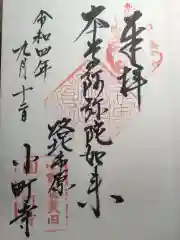 奉拝
本尊阿弥陀如来
小町寺
令和四年
九月十二日